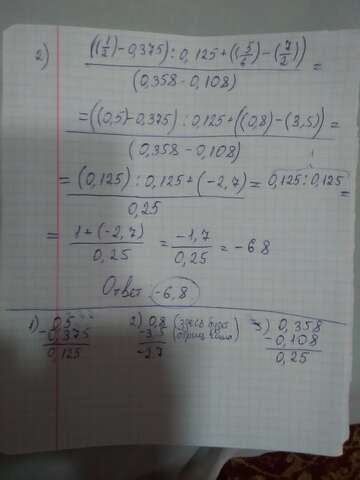 2) ((1/2)-0,375):0,125+((5/6)-(7/2)) / (0,358-0,108) =
= ((0,5)-0,375):0,125+((0,8)-(3,5)) / (0,358-0,108) =
= (0,125):0,125+(-2,7) / 0,25 = 0,125:0,125 =
= 1+(-2,7) / 0,25 = -1,7 / 0,25 = -6.8
Ответ -6,8
1) 0,5 - 0,375 = 0,125
2) 0,8 -3,5 -2,7 (здесь буд отриц число)
3) 0,358 - 0,108 0,25